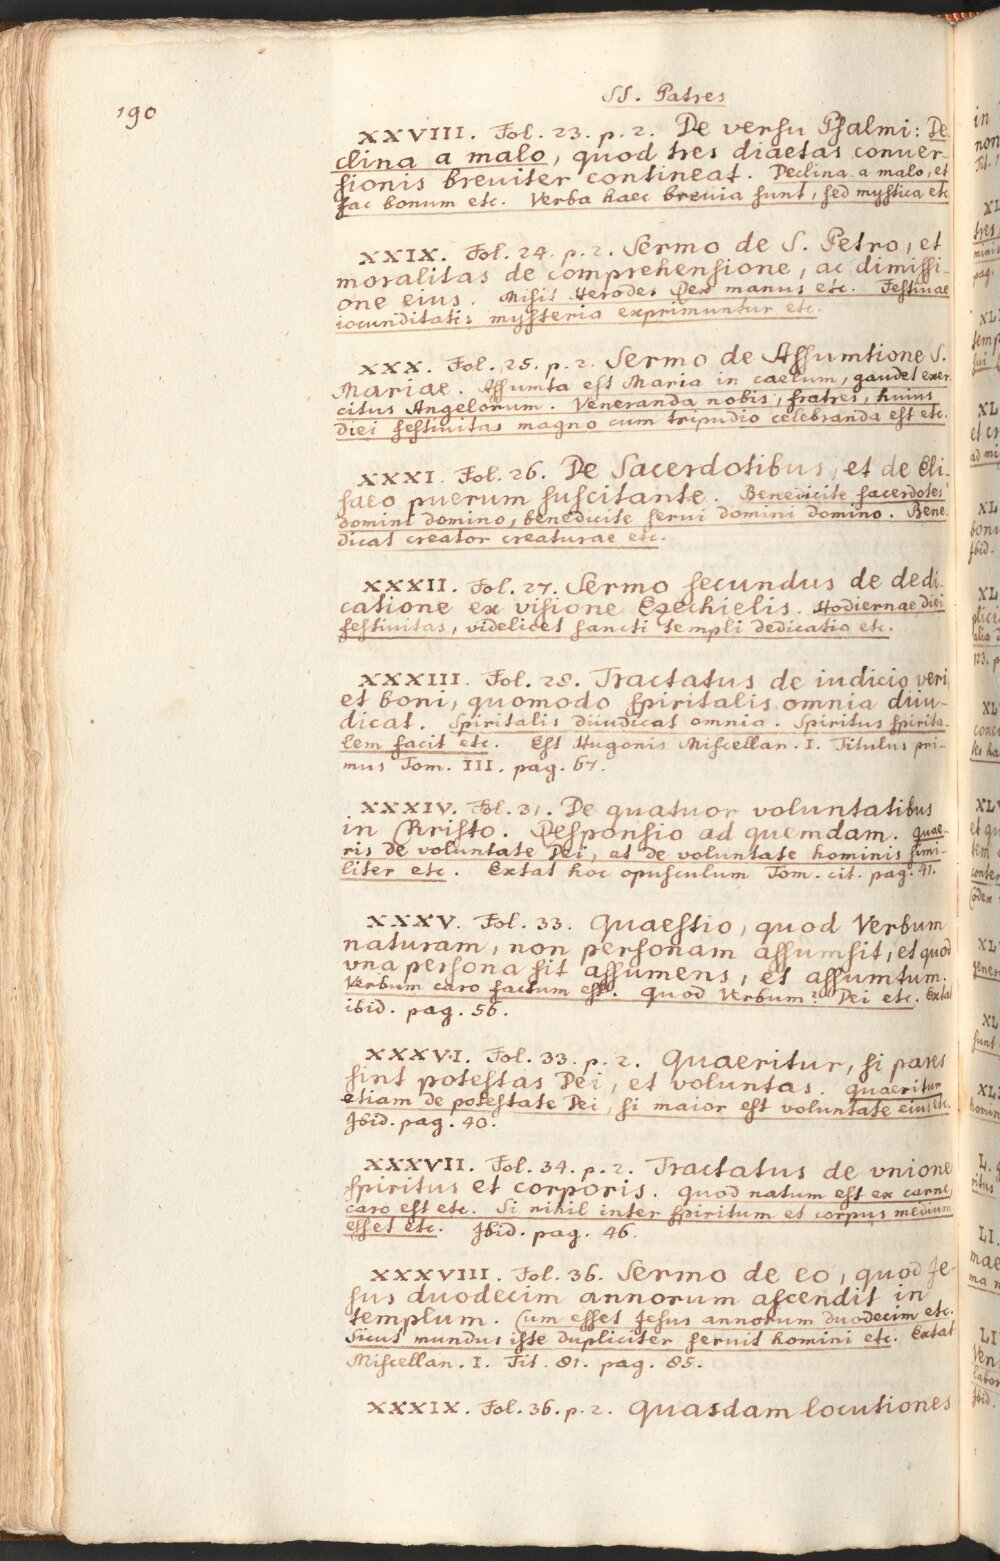 190
SS. Patres
XXVIII. Fol. 23. p. 2. De versu Psalmi: De
clina a malo, quod tres diaetas conver-
sionis breviter contineat. Declina a malo, et
fac bonum etc. Verba haec brevia sunt, sed mystica etc
XXIX. Fol. 24. p. 2. Sermo de S. Petro, et
moralitas de comprehensione, ac dimissi-
one eius. Misit Herodes Rex manus etc. Festivae
iocunditatis mysteria exprimuntur etc.
XXX. Fol. 25. p. 2. Sermo de Assumtione S.
Mariae. Assumta est Maria in caelum, gaudet exer
citus Angelorum. Veneranda nobis, fratres, huius
diei festivitas magno cum tripudio celebranda est etc.
XXXI. Fol. 26. De Sacerdotibus, et de Eli-
saeo puerum suscitante. Benedicite sacerdotes
domini domino, benedicite servi domini domino. Bene
dicat creator creaturae etc.
XXXII. Fol. 27. Sermo secundus de dedi-
catione ex visione Ezechielis. Hodiernae diei
festivitas, videlicet sancti templi dedicatio etc.
XXXIII. Fol. 28. Tractatus de iudicio veri,
et boni, quomodo spiritalis omnia diiu-
dicat. Spiritalis diiudicat omnia. Spiritus spirita-
lem facit etc. Est Hugonis Miscellan. I. Titulus pri-
mus Tom. III. pag. 67.
XXXIV. Fol. 31. De quatuor voluntatibus
in Christo. Responsio ad quemdam. Quae-
ris de voluntate Dei, et de voluntate hominis simi-
liter etc. Extat hoc opusculum Tom. cit. pag. 41.
XXXV. Fol. 33. Quaestio, quod Verbum
naturam, non personam assumsit, et quod
vna persona sit assumens, et assumtum.
Verbum caro factum est. Quod Verbum? Dei etc. Extat
ibid. pag. 56.
XXXVI. Fol. 33. p. 2. Quaeritur, si pares
sint potestas Dei, et voluntas. Quaeritur
etiam de potestate Dei, si maior est voluntate eius etc.
Ibid. pag. 40.
XXXVII. Fol. 34. p. 2. Tractatus de vnione
spiritus et corporis. Quod natum est ex carne,
caro est etc. Si nihil inter spiritum et corpus medium
esset etc. Ibid. pag. 46.
XXXVIII. Fol. 36. Sermo de eo, quod Je-
sus duodecim annorum ascendit in
templum. Cum esset Jesus annorum duodecim etc.
Sicut mundus iste dupliciter servit homini etc. Extat
Miscellan. I. Tit. 81. pag. 85.
XXXIX. Fol. 36. p. 2. Quasdam locutiones